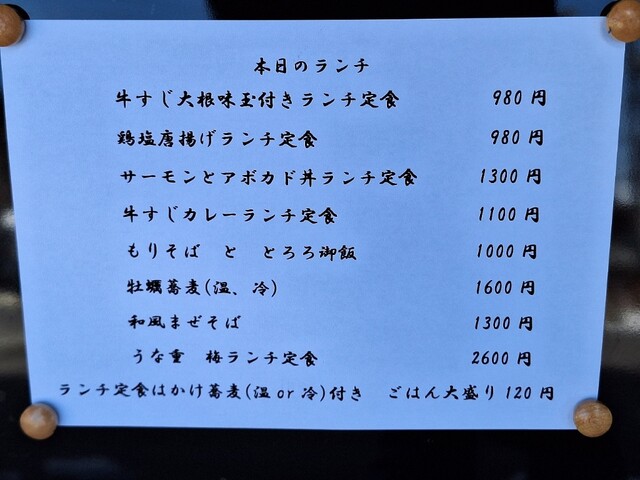 本日のランチ
牛すじ大根味玉付きランチ定食 980 円
鶏塩唐揚げランチ定食 980 円
サーモンとアボカド丼ランチ定食 1300 円
牛すじカレーランチ定食 1100 円
もりそば と とろろ御飯 1000 円
牡蠣蕎麦(温、冷) 1600 円
和風まぜそば 1300 円
うな重 梅ランチ定食 2600 円
ランチ定食はかけ蕎麦(温 or 冷)付き ごはん大盛り 120 円